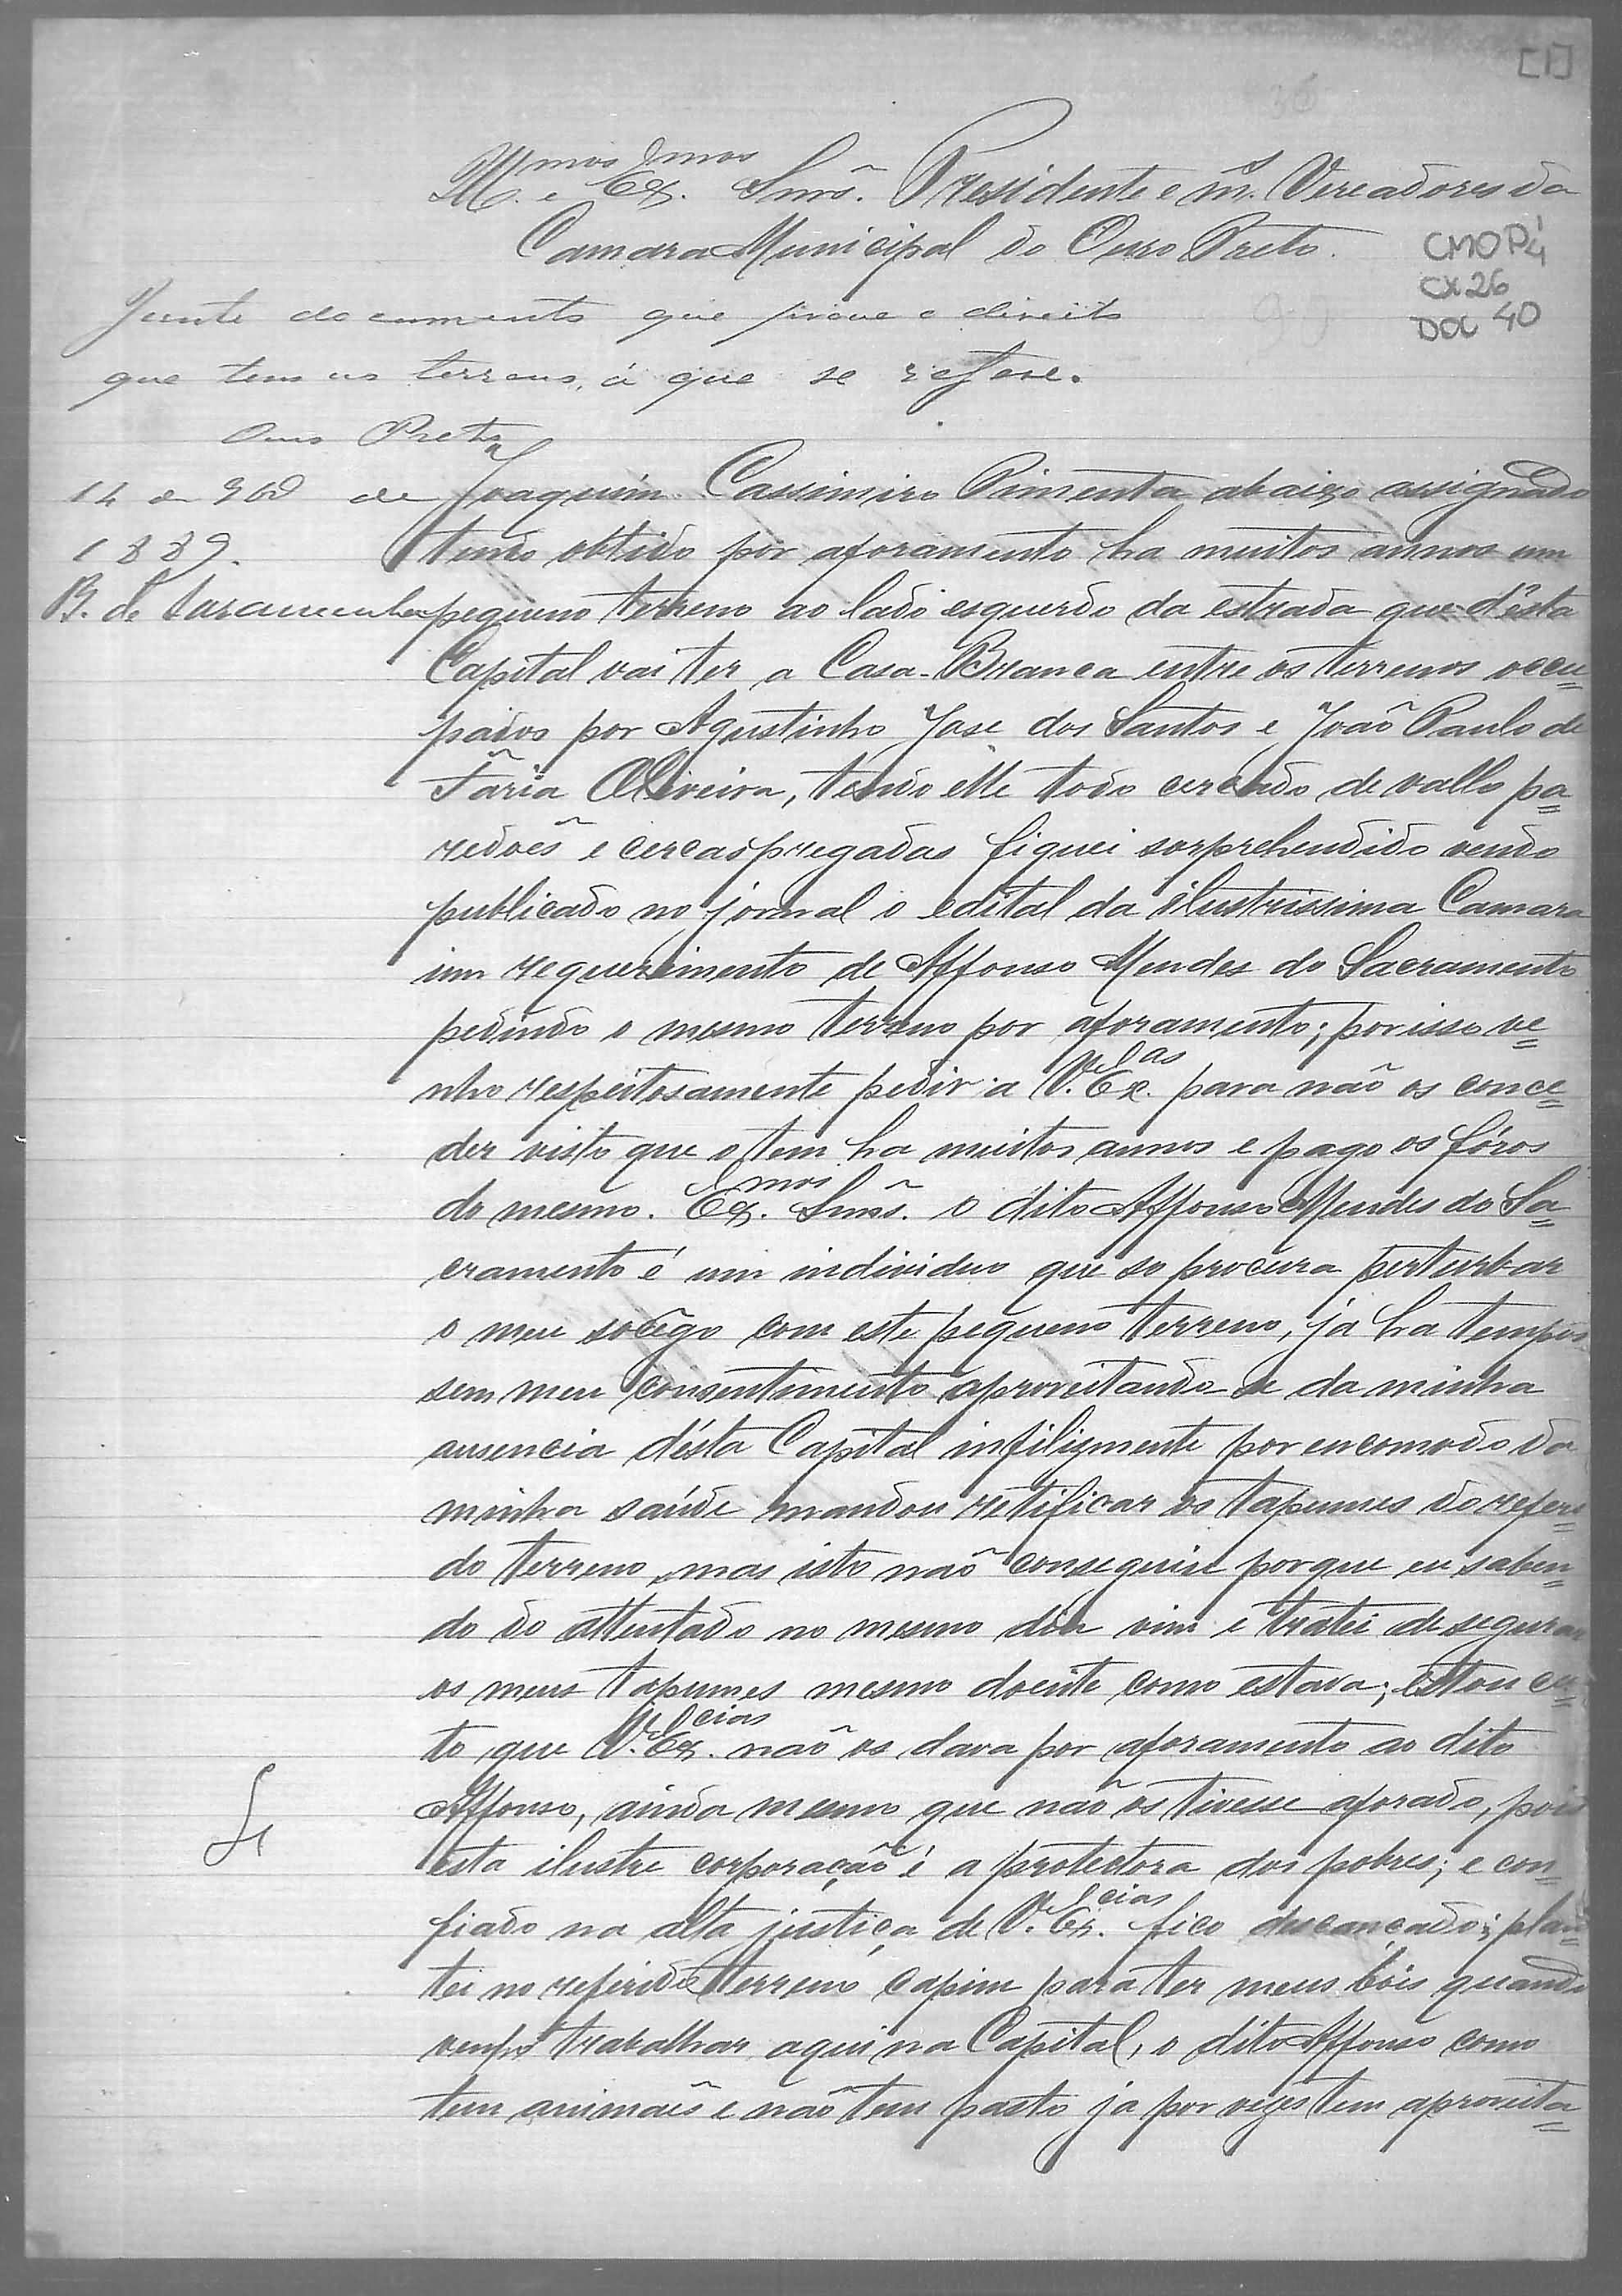 [1]
M.mos e Ex.mos Snrs. Presidente e m.s Vereadores da
Camara Municipal do Ouro Preto.
CMOP 4
CX 26
DOC 40
Junte documento que prove o direito
que tem aos terrenos, á que se refere.
Ouro Preto
14 de de
1889.
B. de Saramenha
Joaquim Cassimiro Pimenta abaixo assignado
tendo obtido por aforamento ha muitos annos um
pequeno terreno ao lado esquerdo da estrada que d'esta
Capital vai ter a Casa-Branca entre os terrenos occu=
pados por Agustinho Jose dos Santos e João Paulo de
Faria Oliveira, tendo elle todo cercado de vallo pa=
redoẽs e cercas pregadas fiquei sorprehendido vendo
publicado no jornal o edital da ilustrissima Camara
um requerimento de Affonso Mendes do Sacramento
pedindo o mesmo terreno por aforamento; por isso ve=
nho respeitosamente pedir a V. Ex.as para não os conce=
der visto que o tem ha muitos annos e pago os fóros
do mesmo. Ex.mos Snrs. o dito Affonso Mendes do Sa=
cramento é um individuo que so procura perturbar
o meu socêgo com este pequeno terreno, já ha tempos
sem meu consentimento aproveitando se da minha
ausencia d'ésta Capital infilizmente por encomodo da
minha saúde mandou retificar os tapumes do referi=
do terreno, mas isto naõ conseguiu porque eu saben=
do do attentado no mesmo dia vim e tratei de segurar
os meus tapumes mesmo doente como estava; estou cer=
to que V. Ex.cias naõ os dava por aforamento ao dito
Affonso, ainda mesmo que naõ os tivesse aforado, pois
esta ilustre corporação é a protectora dos pobres; e con=
fiado na alta justiça de V. Ex.cias fico descançado; plan=
tei no referido terreno capim para ter meus bóis quando
venho trabalhar aqui na Capital, o dito Affonso como
tem animaẽs e naõ tem pasto ja por vezes tem aproveita=